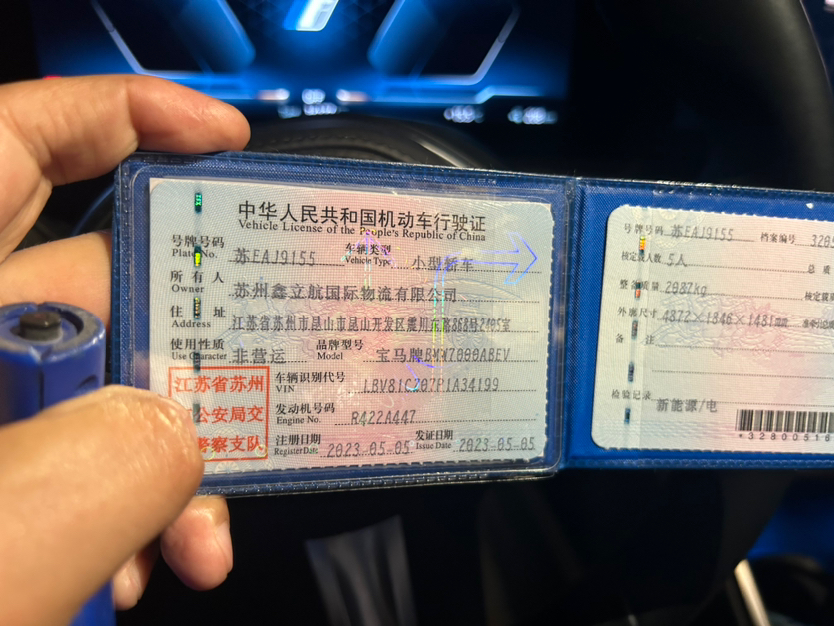 中华人民共和国机动车行驶证
Vehicle License of the People's Republic of China
号牌号码 苏EAJ9155 车辆类型 小型轿车
Plate No. Vehicle Type
所有人 苏州鑫立航国际物流有限公司
Owner
住址 江苏省苏州市昆山市昆山开发区震川东路868号2405室
Address
使用性质 非营运 品牌型号 宝马牌BMW7000ABEV
Use Character Model
江苏省苏州
公安局交
警察支队
车辆识别代号 LBV81CZ07P1A34199
VIN
发动机号码 R422A447
Engine No.
注册日期 2023-05-05 发证日期 2023-05-05
Register Date Issue Date
号牌号码 苏EAJ9155 档案编号 3205
核定载人数 5人 总质
整备质量 2087kg 核定载
外廓尺寸 4872×1846×1481mm
备注
检验记录 新能源/电
*32800516